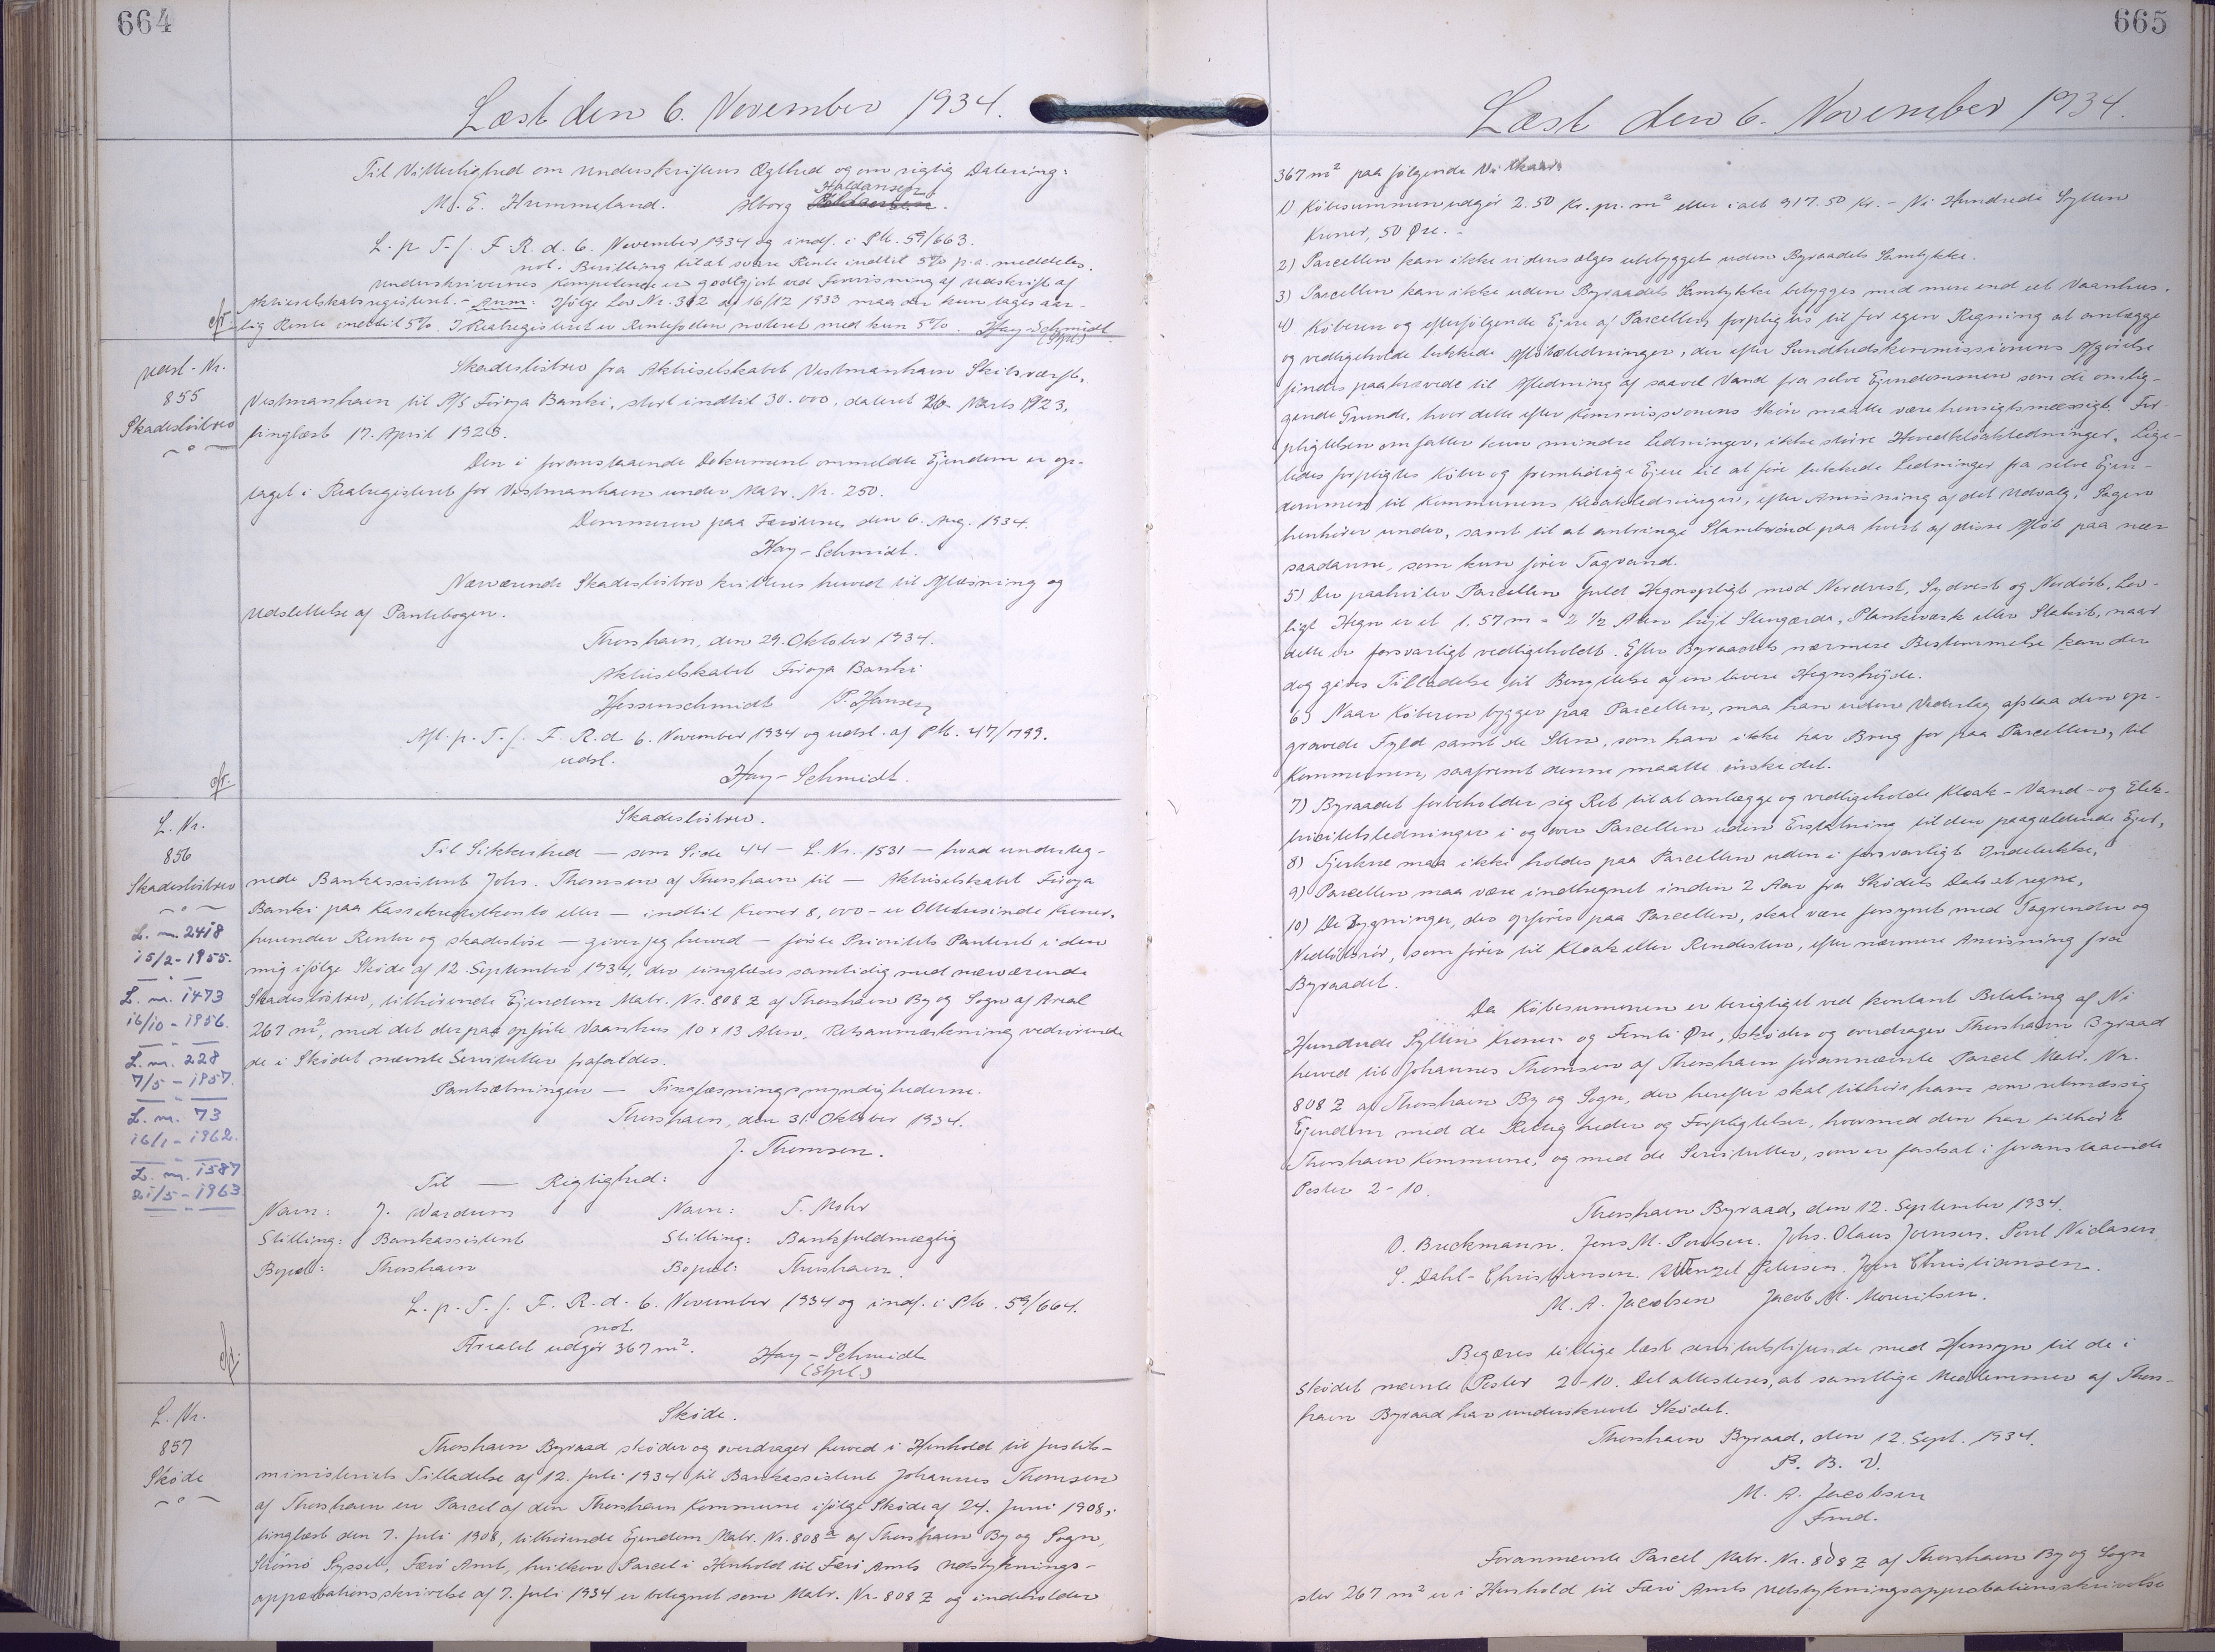 664
Læst den 6. November 1934.
Til Vitterlighed om Underskriftens Ægthed og om rigtig Datering:
M. E. Hummeland. Alborg Haldansen.
L. p. T. f. F. R. d. 6. November 1934 og indf. i Pb. 59/663.
not. Bevilling til at svare Rente indtil 5% p.a. meddeles.
Underskrivernes Kompetence er godtgjort ved Forevisning af Udskrift af
Aktieselskabsregisteret. - Anm: Ifølge Lov Nr. 312 af 16/12 1933 maa der kun tages aar-
lig Rente indtil 5%. I Realregisteret er Rentefoden noteret med kun 5%. Hay-Schmidt
(Stpl.)
Skadesløsbrev fra Aktieselskabet Vestmanhavn Skibsværft,
Vestmanhavn til A/S Føroya Banki, stort indtil 30.000, dateret 26. Marts 1923,
tinglæst 17. April 1923.
Den i foranstaaende Dokument ommeldte Ejendom er op-
taget i Realregisteret for Vestmanhavn under Matr. Nr. 250.
Dommeren paa Færøerne, den 6. Aug. 1934.
Hay-Schmidt.
Nærværende Skadesløsbrev kvitteres herved til Aflæsning og
Udslettelse af Pantebogen.
Thorshavn, den 29. Oktober 1934.
Aktieselskabet Føroya Banki
Hessenschmidt P. Hansen
Afl. p. T. f. F. R. d. 6. November 1934 og udsl. af Pb. 47/799.
udsl.
Hay-Schmidt.
Skadesløsbrev.
Til Sikkerhed — som Side 44 — L. Nr. 1531 — hvad underteg-
nede Bankassistent Johs. Thomsen af Thorshavn til — Aktieselskabet Føroya
Banki paa Kassekreditkonto eller — indtil Kroner 8,000 - er Ottetusinde Kroner,
herunder Renter og skadesløse — giver jeg herved — første Prioritets Panteret i den
mig ifølge Skøde af 12. September 1934, der tinglæses samtidig med nærværende
Skadesløsbrev, tilhørende Ejendom Matr. Nr. 808 z af Thorshavn By og Sogn af Areal
267 m², med det derpaa opførte Vaanhus 10 x 13 Alen. Retsanmærkning vedrørende
de i Skødet nævnte Servitutter frafaldes.
Pantsætningen — Tinglæsningsmyndighederne.
Thorshavn, den 31. Oktober 1934.
J. Thomsen.
Til — Rigtighed:
Navn: J. Wardum Navn: T. Mohr
Stilling: Bankassistent Stilling: Bankfuldmægtig
Bopæl: Thorshavn Bopæl: Thorshavn.
L. p. T. f. F. R. d. 6. November 1934 og indf. i Pb. 59/664.
not.
Arealet udgør 367 m². Hay-Schmidt
(Stpl.)
Skøde.
Thorshavn Byraad skøder og overdrager herved i Henhold til Justits-
ministeriets Tilladelse af 12. Juli 1934 til Bankassistent Johannes Thomsen
af Thorshavn en Parcel af den Thorshavn Kommune ifølge Skøde af 24. Juni 1908,
tinglæst den 7. Juli 1908, tilhørende Ejendom Matr. Nr. 808 a af Thorshavn By og Sogn,
Strømø Syssel, Færø Amt, hvilken Parcel i Henhold til Færø Amts Udstyknings-
approbationsskrivelse af 7. Juli 1934 er betegnet som Matr. Nr. 808 z og indeholder
cfr.
vest - Nr.
855
Skadesløsbrev
cfr.
L. Nr.
856
Skadesløsbrev
L. nr. 2418
15/2 - 1955.
L. nr. 1473
16/10 - 1956.
L. nr. 228
7/5 - 1957.
L. nr. 73
16/1 - 1962.
L. nr. 1587
21/5 - 1963.
cfr.
L. Nr.
857
Skøde
665
Læst den 6. November 1934.
367 m² paa følgende Vilkaar:
1) Købesummen udgør 2.50 Kr. pr. m² eller ialt 917.50 Kr. - Ni Hundrede Sytten
Kroner, 50 Øre. -
2) Parcellen kan ikke videresælges ubebygget uden Byraadets Samtykke.
3) Parcellen kan ikke uden Byraadets Samtykke bebygges med mere end eet Vaanhus.
4) Køberen og efterfølgende Ejere af Parcellen forpligtes til for egen Regning at anlægge
og vedligeholde lukkede Afløbsledninger, der efter Sundhedskommissionens Afgørelse
findes paakrævede til Afledning af saavel Vand fra selve Ejendommen som de omlig-
gende Grunde, hvor dette efter Kommissionens Skøn maatte være hensigtsmæssigt. For-
pligtelsen omfatter kun mindre Ledninger, ikke større Hovedkloakledninger. Lige-
ledes forpligtes Køber og fremtidige Ejere til at føre lukkede Ledninger fra selve Ejen-
dommen til Kommunens Kloakledninger, efter Anvisning af det Udvalg, Sagen
henhører under, samt til at anbringe Slambrønd paa hvert af disse Afløb paa nær
saadanne, som kun fører Tagvand.
5) Der paahviler Parcellen fuld Hegnspligt mod Nordvest, Sydvest og Nordøst. Lov-
ligt Hegn er et 1.57 m = 2 1/2 Alen højt Stengærde, Plankeværk eller Stakit, naar
dette er forsvarligt vedligeholdt. Efter Byraadets nærmere Bestemmelse kan der
dog gives Tilladelse til Benyttelse af en lavere Hegnshøjde.
6) Naar Køberen bygger paa Parcellen, maa han uden Vederlag afstaa den op-
gravede Fyld samt de Sten, som han ikke har Brug for paa Parcellen, til
Kommunen, saafremt denne maatte ønske det.
7) Byraadet forbeholder sig Ret til at anlægge og vedligeholde Kloak- Vand- og Elek-
tricitetsledninger i og over Parcellen uden Erstatning til den paagældende Ejer,
8) Fjerkræ maa ikke holdes paa Parcellen uden i forsvarligt Indelukke,
9) Parcellen maa være indhegnet inden 2 Aar fra Skødets Dato at regne,
10) De Bygninger, der opføres paa Parcellen, skal være forsynet med Tagrender og
Nedløbsrør, som fører til Kloak eller Rendesten, efter nærmere Anvisning fra
Byraadet.
Da Købesummen er berigtiget ved kontant Betaling af Ni
Hundrede Sytten Kroner og Femti Øre, skøder og overdrager Thorshavn Byraad
herved til Johannes Thomsen af Thorshavn forannævnte Parcel Matr. Nr.
808 z af Thorshavn By og Sogn, der herefter skal tilhøre ham som retmæssig
Ejendom med de Rettigheder og Forpligtelser, hvormed den har tilhørt
Thorshavn Kommune, og med de Servitutter, som er fastsat i foranstaaende
Poster 2-10.
Thorshavn Byraad, den 12. September 1934.
O. Breckmann. Jens M. Poulsen. Johs. Olaus Joensen. Poul Niclasen
S. Dahl-Christiansen. Wenzel Petersen. Jom Christiansen.
M. A. Jacobsen Jacob M. Mouritsen.
Begæres tillige læst servitutstiftende med Hensyn til de i
Skødet nævnte Poster 2-10. Det attesteres, at samtlige Medlemmer af Thors-
havn Byraad har underskrevet Skødet.
Thorshavn Byraad, den 12. Sept. 1934.
P. B. V.
M. A. Jacobsen
Fmd.
Forannævnte Parcel Matr. Nr. 808 z af Thorshavn By og Sogn
stor 267 m² er i Henhold til Færø Amts Udstykningsapprobationsskrivelse